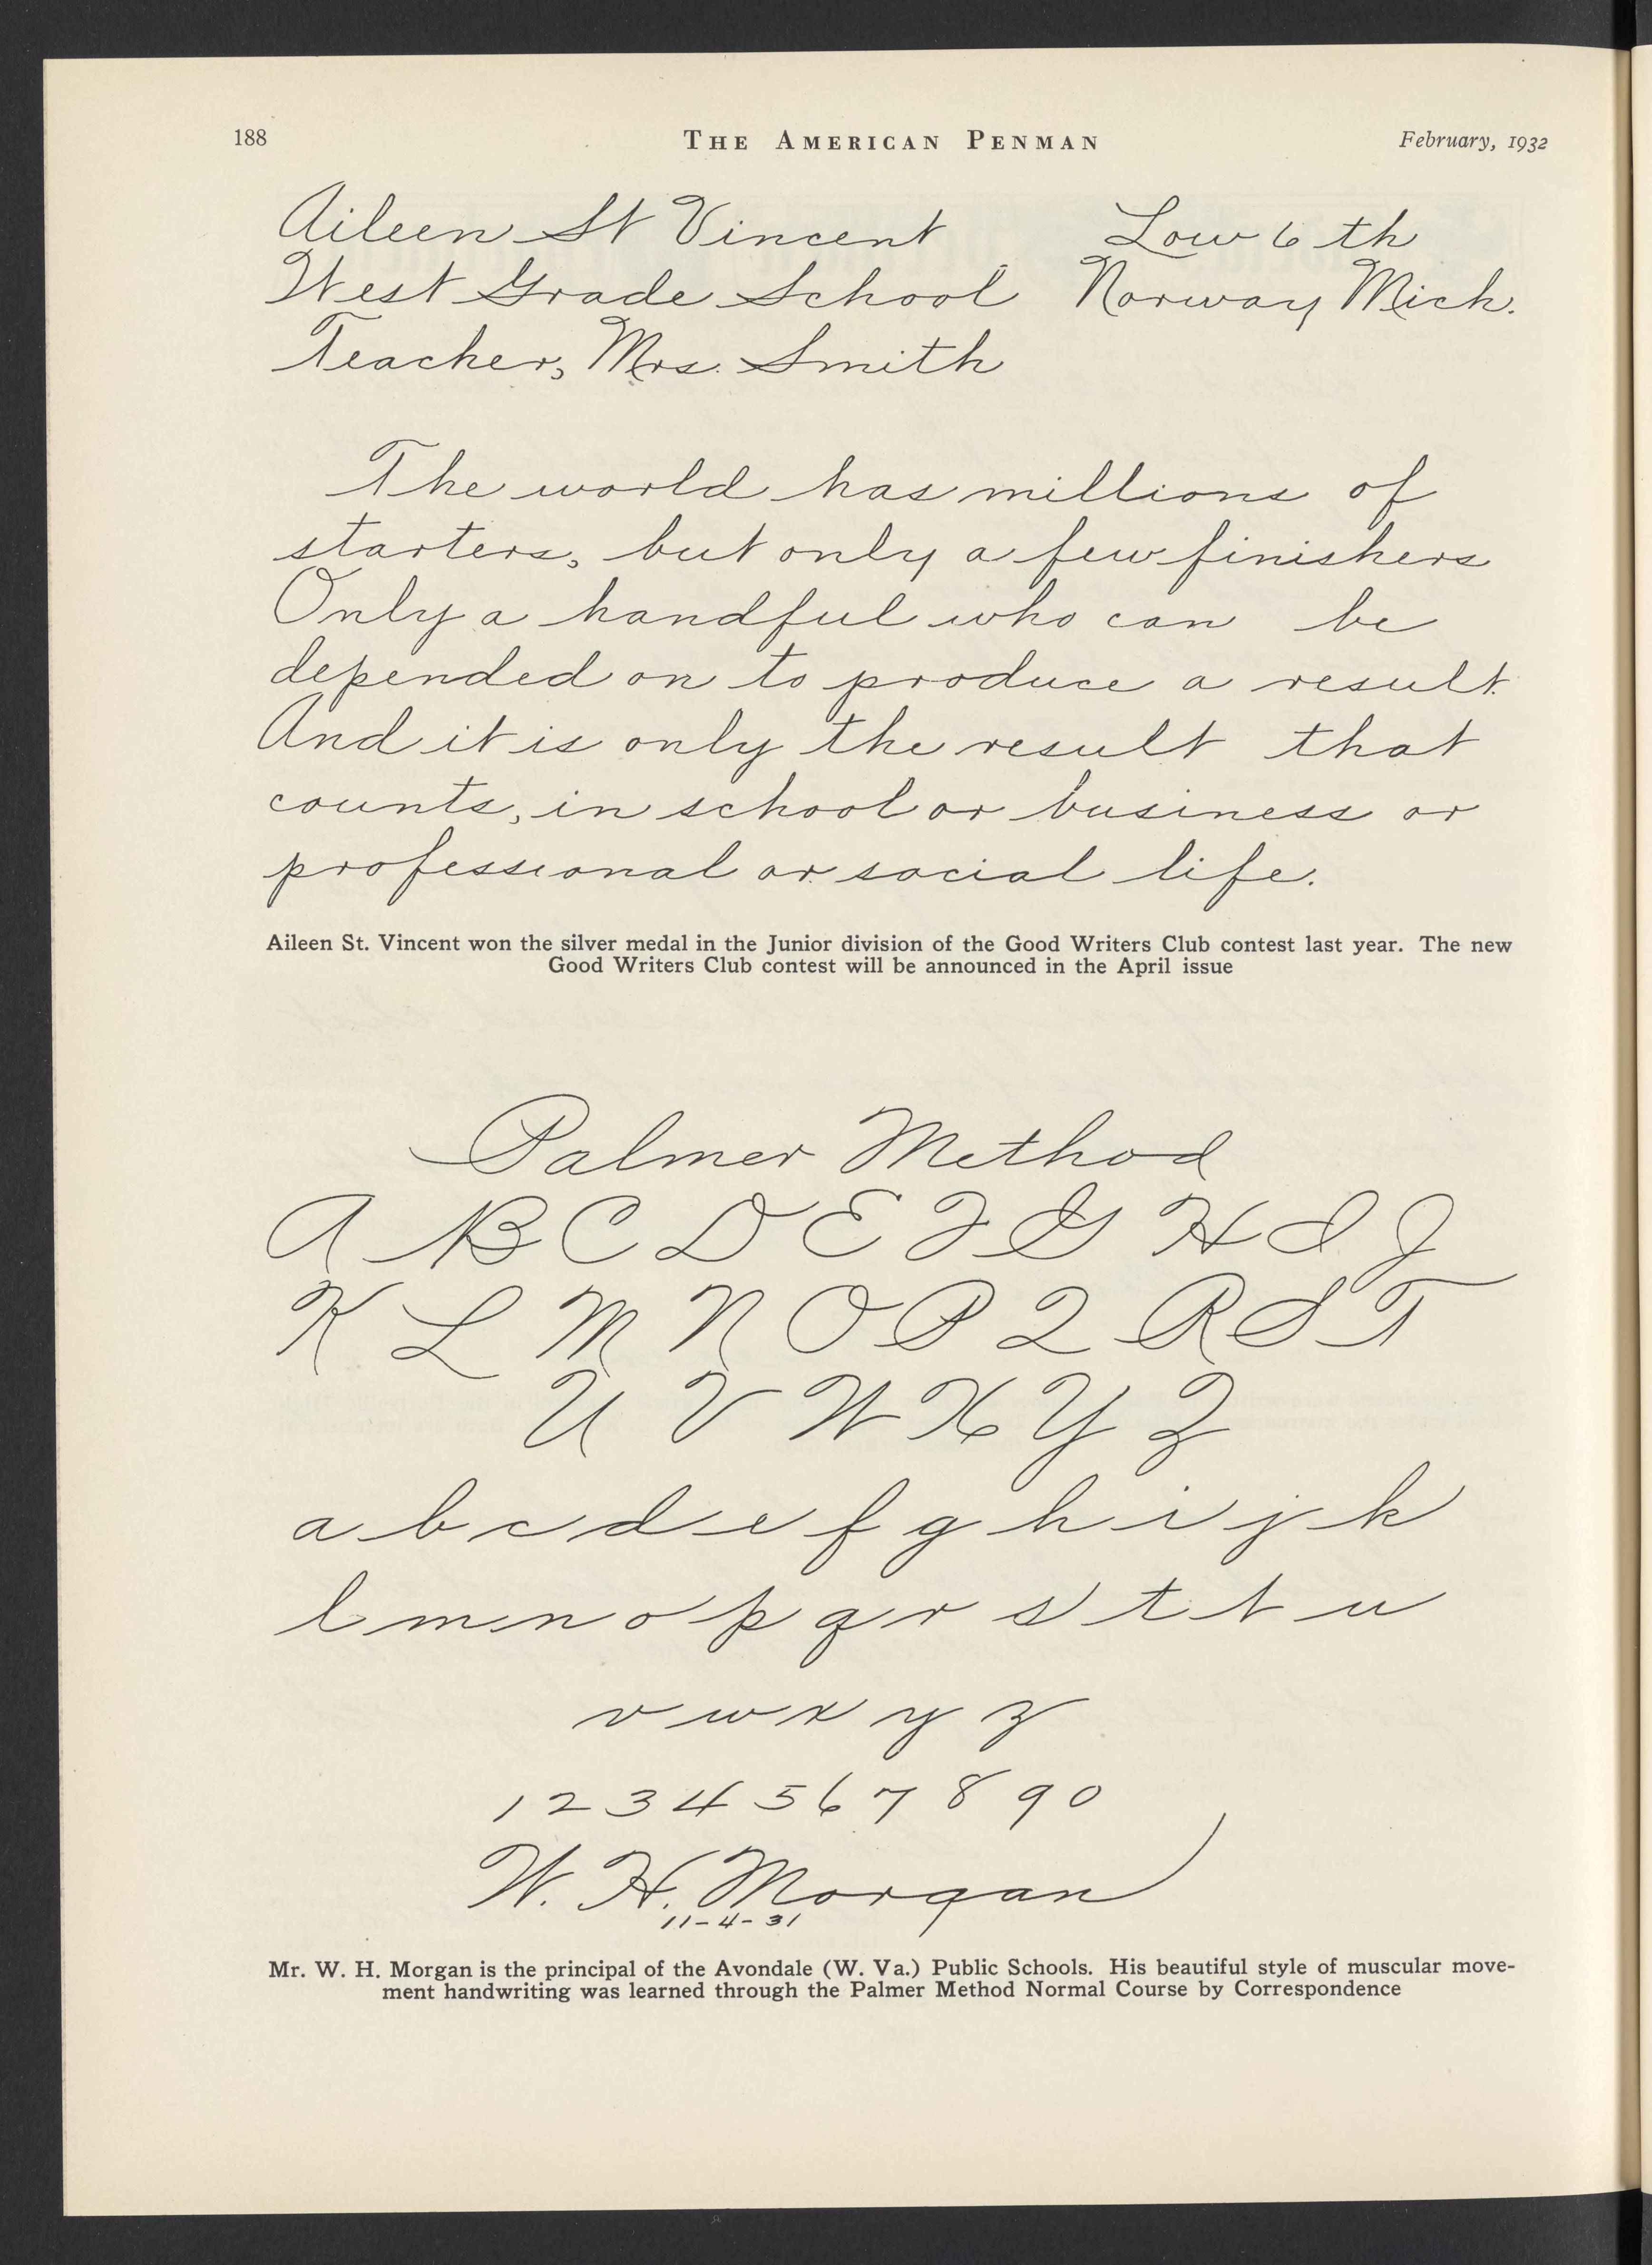 188 THE AMERICAN PENMAN February, 1932
Aileen St Vincent Low 6th
West Grade School Norway Mich.
Teacher, Mrs. Smith
The world has millions of
starters, but only a few finishers
Only a handful who can be
depended on to produce a result.
And it is only the result that
counts, in school or business or
professional or social life.
Aileen St. Vincent won the silver medal in the Junior division of the Good Writers Club contest last year. The new
Good Writers Club contest will be announced in the April issue
Palmer Method
A B C D E F G H I J
K L M N O P Q R S T
U V W X Y Z
a b c d e f g h i j k
l m n o p q r s t t u
v w x y z
1 2 3 4 5 6 7 8 9 0
W. H. Morgan
11-4-31
Mr. W. H. Morgan is the principal of the Avondale (W. Va.) Public Schools. His beautiful style of muscular move-
ment handwriting was learned through the Palmer Method Normal Course by Correspondence